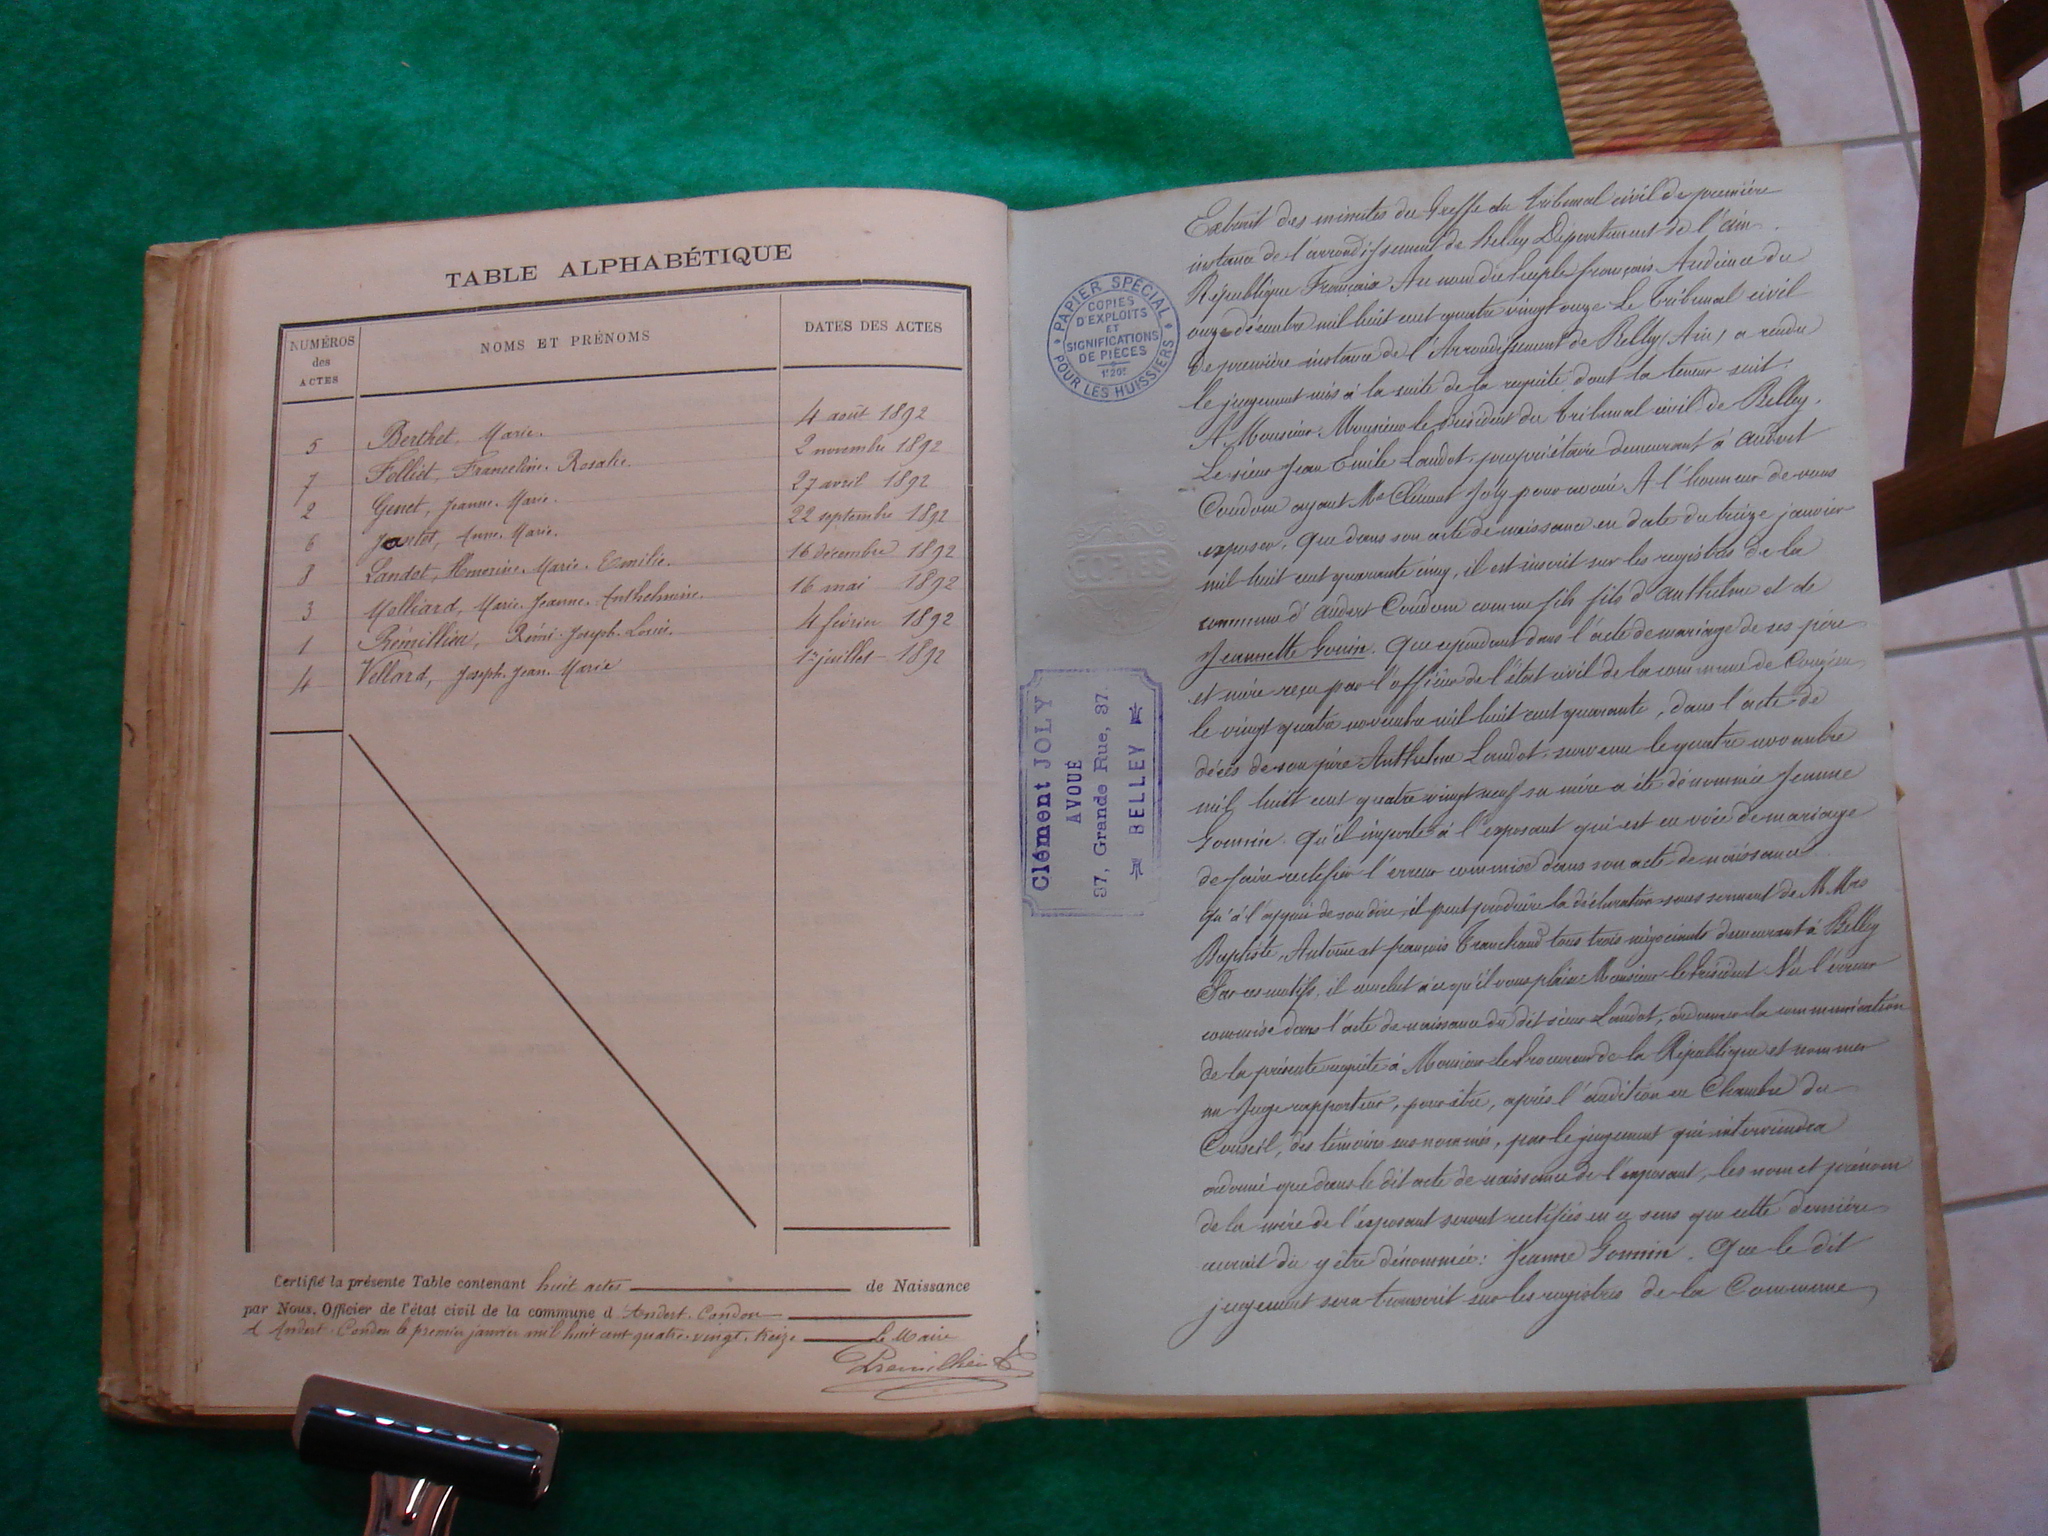 TABLE ALPHABÉTIQUE
NUMÉROS des ACTES
NOMS ET PRÉNOMS
DATES DES ACTES
5 Berthet, Marie. 4 août 1892
7 Folliet, Franceline. Rosalie. 2 novembre 1892
2 Genet, Jeanne. Marie. 27 avril 1892
6 Jantet, Anne. Marie. 22 septembre 1892
8 Landot, Marie. Emilie. 16 décembre 1892
3 Molliard, Marie. Jeanne. Anthelmine. 16 mai 1892
1 Prémillieu, Rémi. Joseph. Louis. 4 février 1892
4 Vellard, Joseph. Jean. Marie 1er juillet 1892
Certifié la présente Table contenant huit actes de Naissance
par Nous, Officier de l'état civil de la commune d'Andert-Condon
A Andert-Condon le premier janvier mil huit cent quatre-vingt-treize Le Maire
PAPIER SPÉCIAL
COPIES
D'EXPLOITS
ET
SIGNIFICATIONS
DE PIÈCES
POUR LES HUISSIERS
COPIES
Clément JOLY
AVOUÉ
37, Grande Rue, 37.
BELLEY
Extrait des minutes du Greffe du tribunal civil de première
instance de l'arrondissement de Belley Département de l'Ain.
République Française Au nom du Peuple français Audience du
onze décembre mil huit cent quatre vingt onze Le Tribunal civil
de première instance de l'Arrondissement de Belley (Ain) a rendu
le jugement mis à la suite de la requête dont la teneur suit.
A Monsieur Monsieur le Président du Tribunal civil de Belley.
Le sieur Jean Emile Landot, propriétaire demeurant à Andert
Condon ayant Me Clément Joly pour avoué A l'honneur de vous
exposer, que dans son acte de naissance en date du treize janvier
mil huit cent quarante cinq, il est inscrit sur les registres de la
commune d'Andert Condon comme fils fils d'Anthelme et de
Jeannette Gonin. Que cependant dans l'acte de mariage de ses père
et mère reçu par l'officier de l'état civil de la commune de
le vingt quatre novembre mil huit cent quarante, dans l'acte de
décès de son père Anthelme Landot, survenu le quatre novembre
mil huit cent quatre vingt neuf sa mère a été dénommée Jeanne
Gonnin. Qu'il importe à l'exposant qui est en voie de mariage
de faire rectifier l'erreur commise dans son acte de naissance
Qu'à l'appui de son dire, il peut produire la déclaration sous serment de M Mrs
Baptiste, Antoine et françois Tranchand tous trois négociants demeurant à Belley
Par ces motifs, il conclut à ce qu'il vous plaise Monsieur le Président Vu l'erreur
commise dans l'acte de naissance du dit sieur Landot, ordonner la communication
de la présente requête à Monsieur le Procureur de la République et nommer
un Juge rapporteur, pour être, après l'audition en Chambre du
Conseil, des témoins sus nommés, par le jugement qui interviendra
ordonné que dans le dit acte de naissance de l'exposant, les nom et prénom
de la mère de l'exposant seront rectifiés en ce sens que cette dernière
aurait du y être dénommée: Jeanne Gonnin. Que le dit
jugement sera transcrit sur les registres de la Commune